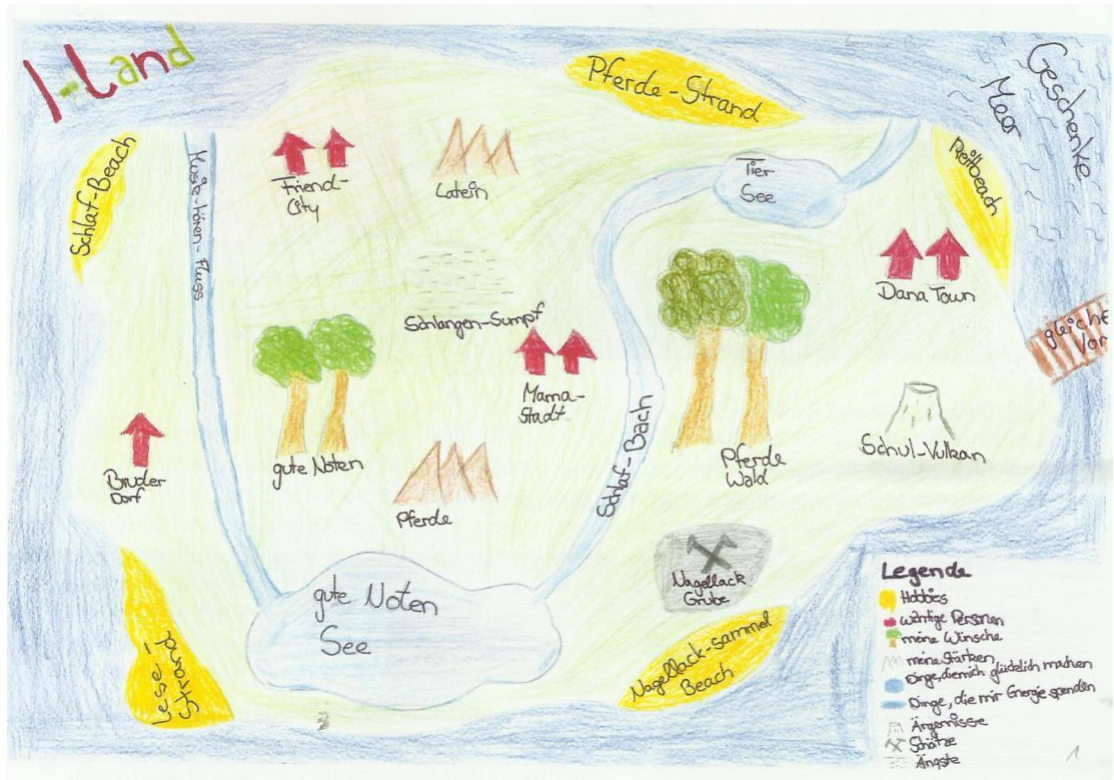 I-Land
Pferde-Strand
Geschenke
Meer
Schlaf-Beach
Musik-hören-Fluss
Friend-
City
Latein
Tier
See
Reitbeach
Dana Town
Schlangen-Sumpf
gleiche
Vor
Mama-
Stadt
Schlaf-Bach
gute Noten
Pferde
Wald
Schul-Vulkan
Bruder
Dorf
Pferde
Nagellack
Grube
gute Noten
See
Lese-
Strand
Nagellack-sammel
Beach
Legende
Hobbies
wichtige Personen
meine Wünsche
meine Stärken
Dinge, die mich glücklich machen
Dinge, die mir Energie spenden
Ärgernisse
Schätze
Ängste
1